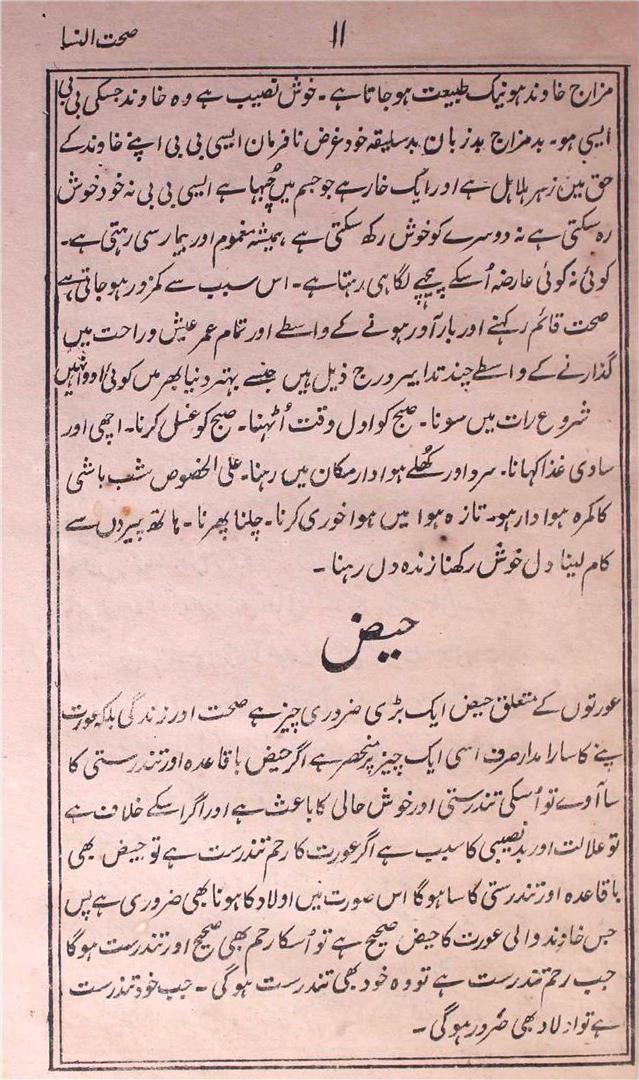 صحت النسا
۱۱
مزاج خاوند ہو نیک طبیعت ہو جاتا ہے ۔ خوش نصیب ہے وہ خاوند جسکی بی بی
ایسی ہو ۔ بدمزاج بدزبان بدسلیقہ خودغرض نافرمان ایسی بی بی اپنے خاوند کے
حق میں زہر ہلاہل ہے اور ایک خار ہے جو جسم میں چُبہا ہے ایسی بی بی نہ خود خوش
رہ سکتی ہے نہ دوسرے کو خوش رکھ سکتی ہے ہمیشہ مغموم اور بیمار سی رہتی ہے ۔
کوئی نہ کوئی عارضہ اُسکے پیچھے لگا ہی رہتا ہے ۔ اس سبب سے کمزور ہو جاتی ہے
صحت قائم رکہنے اور بارآور ہونے کے واسطے اور تمام عمر عیش و راحت میں
گذارنے کے واسطے چند تدابیر درج ذیل ہیں جنسے بہتر دنیا بھر میں کوئی نہیں
شروع رات میں سونا ۔ صبح کو اول وقت اُٹہنا ۔ صبح کو غسل کرنا ۔ اچھی اور
سادی غذا کہانا ۔ سرد اور کھُلے ہوادار مکان میں رہنا ۔ علی الخصوص شب باشی
کا کمرہ ہوادار ہو ۔ تازہ ہوا میں ہوا خوری کرنا ۔ چلنا پھرنا ۔ ہاتھ پیروں سے
کام لینا دل خوش رکھنا زندہ دل رہنا ۔
حیض
عورتوں کے متعلق حیض ایک بڑی ضروری چیز ہے صحت اور زندگی بلکہ عورت
پنے کا سارا مدار صرف اسی ایک چیز پر منحصر ہے اگر حیض باقاعدہ اور تندرستی کا
سا آوے تو اُسکی تندرستی اور خوش حالی کا باعث ہے اور اگر اسکے خلاف ہے
تو علالت اور بدنصیبی کا سبب ہے اگر عورت کا رحم تندرست ہے تو حیض بھی
باقاعدہ اور تندرستی کا سا ہوگا اس صورت میں اولاد کا ہونا بھی ضروری ہے پس
جس خاوند والی عورت کا حیض صحیح ہے تو اُسکا رحم بھی صحیح اور تندرست ہوگا
جب رحم تندرست ہے تو وہ خود بھی تندرست ہوگی ۔ جب خود تندرست
ہے تو اولاد بھی ضرور ہوگی ۔